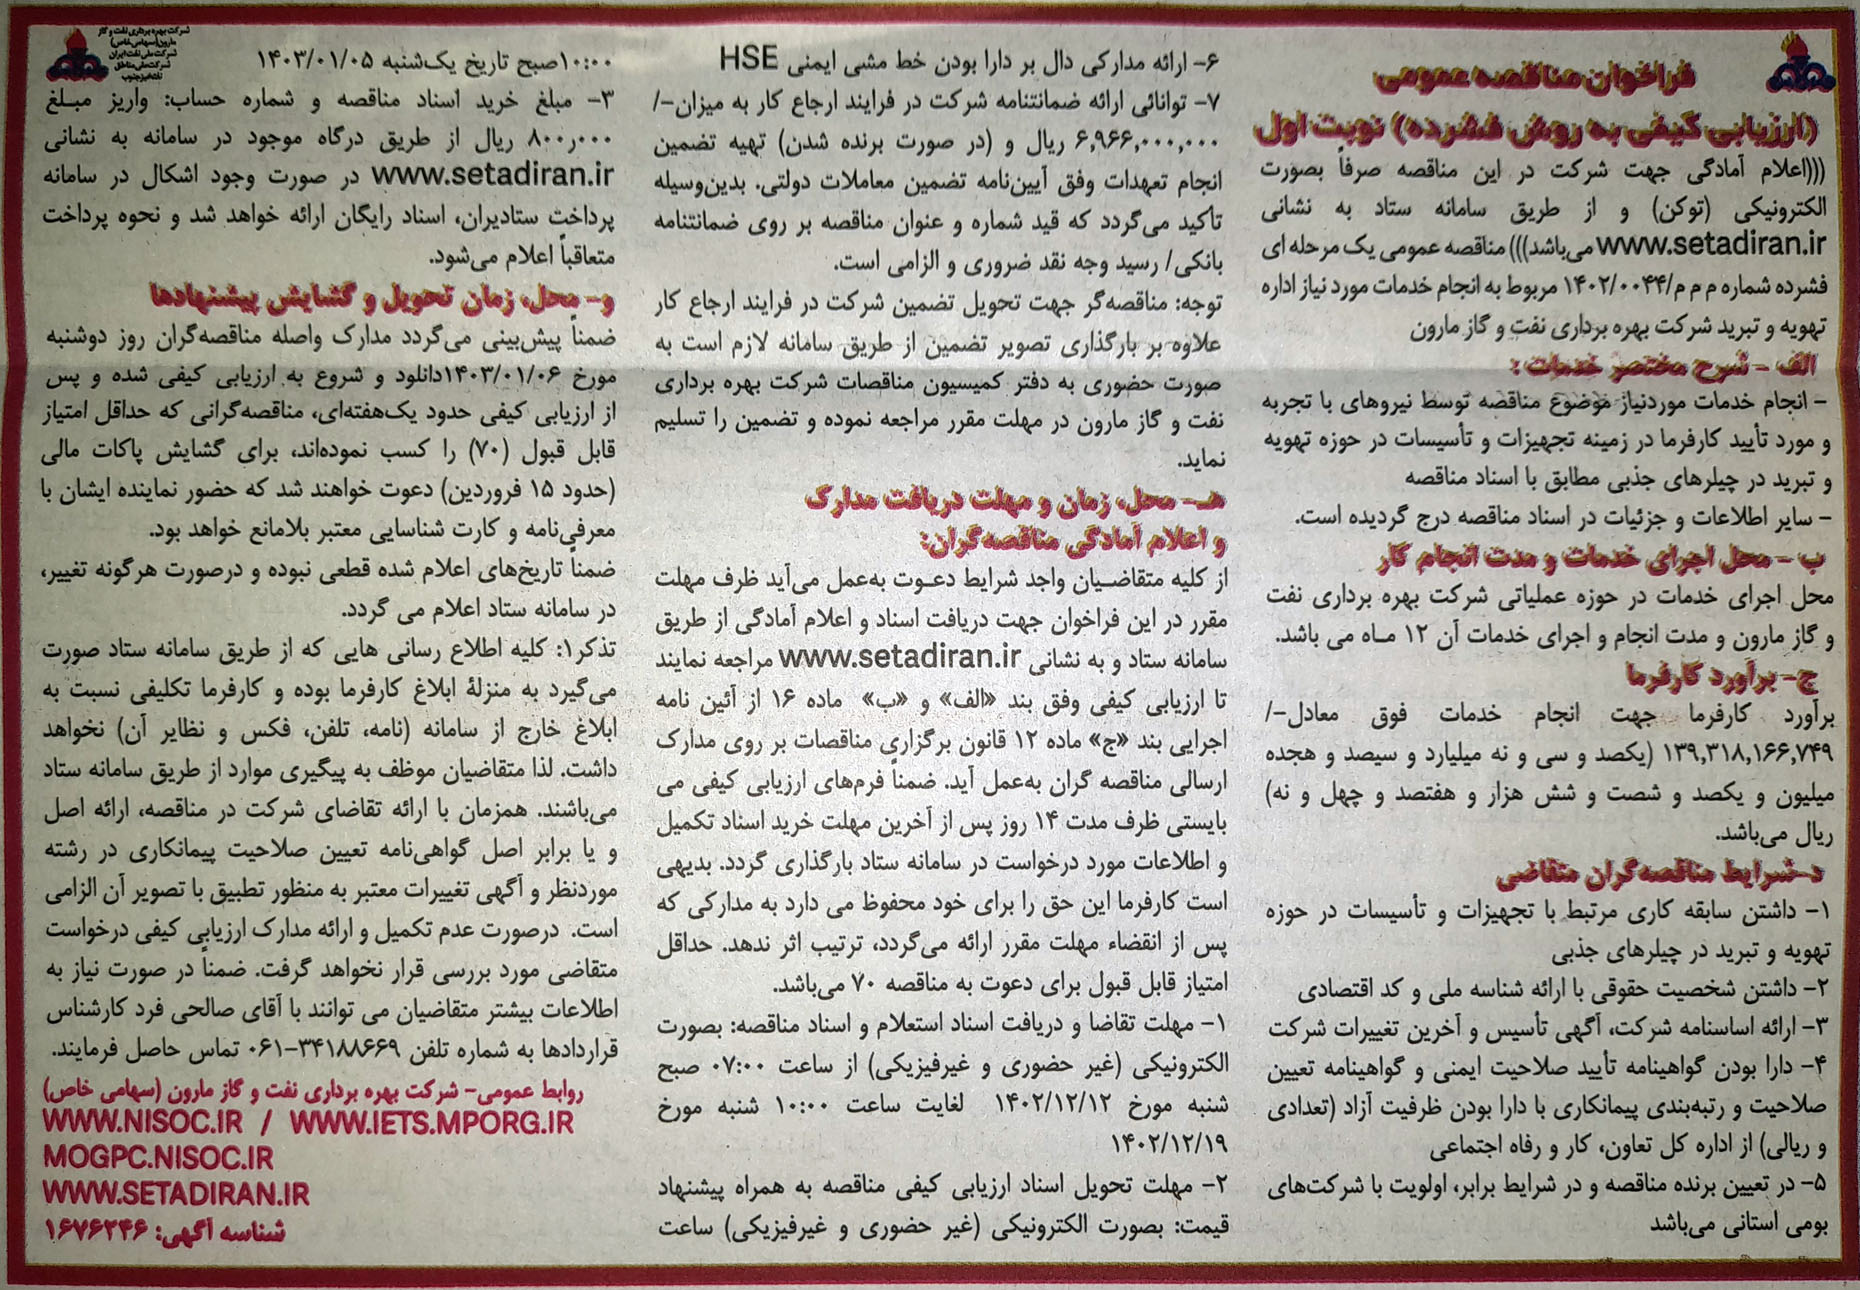 فراخوان مناقصه عمومی
(ارزیابی کیفی به روش فشرده) نوبت اول
(((اعلام آمادگی جهت شرکت در این مناقصه صرفاً بصورت
الکترونیکی (توکن) و از طریق سامانه ستاد به نشانی
www.setadiran.ir می‌باشد))) مناقصه عمومی یک مرحله ای
فشرده شماره م م م/۱۴۰۲/۰۰۴۴ مربوط به انجام خدمات مورد نیاز اداره
تهویه و تبرید شرکت بهره برداری نفت و گاز مارون
الف - شرح مختصر خدمات :
- انجام خدمات موردنیاز موضوع مناقصه توسط نیروهای با تجربه
و مورد تأیید کارفرما در زمینه تجهیزات و تأسیسات در حوزه تهویه
و تبرید در چیلرهای جذبی مطابق با اسناد مناقصه
- سایر اطلاعات و جزئیات در اسناد مناقصه درج گردیده است.
ب - محل اجرای خدمات و مدت انجام کار
محل اجرای خدمات در حوزه عملیاتی شرکت بهره برداری نفت
و گاز مارون و مدت انجام و اجرای خدمات آن ۱۲ مـاه می باشد.
ج- برآورد کارفرما
برآورد کارفرما جهت انجام خدمات فوق معادل-/
۱۳۹,۳۱۸,۱۶۶,۷۴۹ (یکصد و سی و نه میلیارد و سیصد و هجده
میلیون و یکصد و شصت و شش هزار و هفتصد و چهل و نه)
ریال می‌باشد.
د-شرایط مناقصه‌گران متقاضی
۱- داشتن سابقه کاری مرتبط با تجهیزات و تأسیسات در حوزه
تهویه و تبرید در چیلرهای جذبی
۲- داشتن شخصیت حقوقی با ارائه شناسه ملی و کد اقتصادی
۳- ارائه اساسنامه شرکت، آگهی تأسیس و آخرین تغییرات شرکت
۴- دارا بودن گواهینامه تأیید صلاحیت ایمنی و گواهینامه تعیین
صلاحیت و رتبه‌بندی پیمانکاری با دارا بودن ظرفیت آزاد (تعدادی
و ریالی) از اداره کل تعاون، کار و رفاه اجتماعی
۵- در تعیین برنده مناقصه و در شرایط برابر، اولویت با شرکت‌های
بومی استانی می‌باشد
۶- ارائه مدارکی دال بر دارا بودن خط مشی ایمنی HSE
۷- توانائی ارائه ضمانتنامه شرکت در فرایند ارجاع کار به میزان-/
۶,۹۶۶,۰۰۰,۰۰۰ ریال و (در صورت برنده شدن) تهیه تضمین
انجام تعهدات وفق آیین‌نامه تضمین معاملات دولتی. بدین‌وسیله
تأکید می‌گردد که قید شماره و عنوان مناقصه بر روی ضمانتنامه
بانکی/ رسید وجه نقد ضروری و الزامی است.
توجه: مناقصه‌گر جهت تحویل تضمین شرکت در فرایند ارجاع کار
علاوه بر بارگذاری تصویر تضمین از طریق سامانه لازم است به
صورت حضوری به دفتر کمیسیون مناقصات شرکت بهره برداری
نفت و گاز مارون در مهلت مقرر مراجعه نموده و تضمین را تسلیم
نماید.
هـ- محل، زمان و مهلت دریافت مدارک
و اعلام آمادگی مناقصه‌گران:
از کلیه متقاضـیان واجد شرایط دعـوت به‌عمل می‌آید ظرف مهلت
مقرر در این فراخوان جهت دریافت اسناد و اعلام آمادگی از طریق
سامانه ستاد و به نشانی www.setadiran.ir مراجعه نمایند
تا ارزیابی کیفی وفق بند «الف» و «ب» ماده ۱۶ از آئین نامه
اجرایی بند «ج» ماده ۱۲ قانون برگزاری مناقصات بر روی مدارک
ارسالی مناقصه گران به‌عمل آید. ضمناً فرم‌های ارزیابی کیفی می
بایستی ظرف مدت ۱۴ روز پس از آخرین مهلت خرید اسناد تکمیل
و اطلاعات مورد درخواست در سامانه ستاد بارگذاری گردد. بدیهی
است کارفرما این حق را برای خود محفوظ می دارد به مدارکی که
پس از انقضاء مهلت مقرر ارائه می‌گردد، ترتیب اثر ندهد. حداقل
امتیاز قابل قبول برای دعوت به مناقصه ۷۰ می‌باشد.
۱- مهلت تقاضا و دریافت اسناد استعلام و اسناد مناقصه: بصورت
الکترونیکی (غیر حضوری و غیرفیزیکی) از ساعت ۰۷:۰۰ صبح
شنبه مورخ ۱۴۰۲/۱۲/۱۲ لغایت ساعت ۱۰:۰۰ شنبه مورخ
۱۴۰۲/۱۲/۱۹
۲- مهلت تحویل اسناد ارزیابی کیفی مناقصه به همراه پیشنهاد
قیمت: بصورت الکترونیکی (غیر حضوری و غیرفیزیکی) ساعت
شرکت بهره برداری نفت و گاز
مارون(سهامی خاص)
شرکت ملی نفت ایران
شرکت ملی مناطق
نفتخیز جنوب
۱۰:۰۰صبح تاریخ یک‌شنبه ۱۴۰۳/۰۱/۰۵
۳- مبلغ خرید اسناد مناقصه و شماره حساب: واریز مبلـغ
۸۰۰٫۰۰۰ ریال از طریق درگاه موجود در سامانه به نشانی
www.setadiran.ir در صورت وجود اشکال در سامانه
پرداخت ستادیران، اسناد رایگان ارائه خواهد شد و نحوه پرداخت
متعاقباً اعلام می‌شود.
و- محل، زمان تحویل و گشایش پیشنهادها
ضمناً پیش‌بینی می‌گردد مدارک واصله مناقصه‌گران روز دوشنبه
مورخ ۱۴۰۳/۰۱/۰۶دانلود و شروع به ارزیابی کیفی شده و پس
از ارزیابی کیفی حدود یک‌هفته‌ای، مناقصه‌گرانی که حداقل امتیاز
قابل قبول (۷۰) را کسب نموده‌اند، برای گشایش پاکات مالی
(حدود ۱۵ فروردین) دعوت خواهند شد که حضور نماینده ایشان با
معرفی‌نامه و کارت شناسایی معتبر بلامانع خواهد بود.
ضمناً تاریخ‌های اعلام شده قطعی نبوده و درصورت هرگونه تغییر،
در سامانه ستاد اعلام می گردد.
تذکر۱: کلیه اطلاع رسانی هایی که از طریق سامانه ستاد صورت
می‌گیرد به منزلهٔ ابلاغ کارفرما بوده و کارفرما تکلیفی نسبت به
ابلاغ خارج از سامانه (نامه، تلفن، فکس و نظایر آن) نخواهد
داشت. لذا متقاضیان موظف به پیگیری موارد از طریق سامانه ستاد
می‌باشند. همزمان با ارائه تقاضای شرکت در مناقصه، ارائه اصل
و یا برابر اصل گواهی‌نامه تعیین صلاحیت پیمانکاری در رشته
موردنظر و آگهی تغییرات معتبر به منظور تطبیق با تصویر آن الزامی
است. درصورت عدم تکمیل و ارائه مدارک ارزیابی کیفی درخواست
متقاضی مورد بررسی قرار نخواهد گرفت. ضمناً در صورت نیاز به
اطلاعات بیشتر متقاضیان می توانند با آقای صالحی فرد کارشناس
قراردادها به شماره تلفن ۳۴۱۸۸۶۶۹-۰۶۱ تماس حاصل فرمایند.
روابط عمومی- شرکت بهره برداری نفت و گاز مارون (سهامی خاص)
WWW.NISOC.IR / WWW.IETS.MPORG.IR
MOGPC.NISOC.IR
WWW.SETADIRAN.IR
شناسه آگهی: ۱۶۷۶۲۴۶